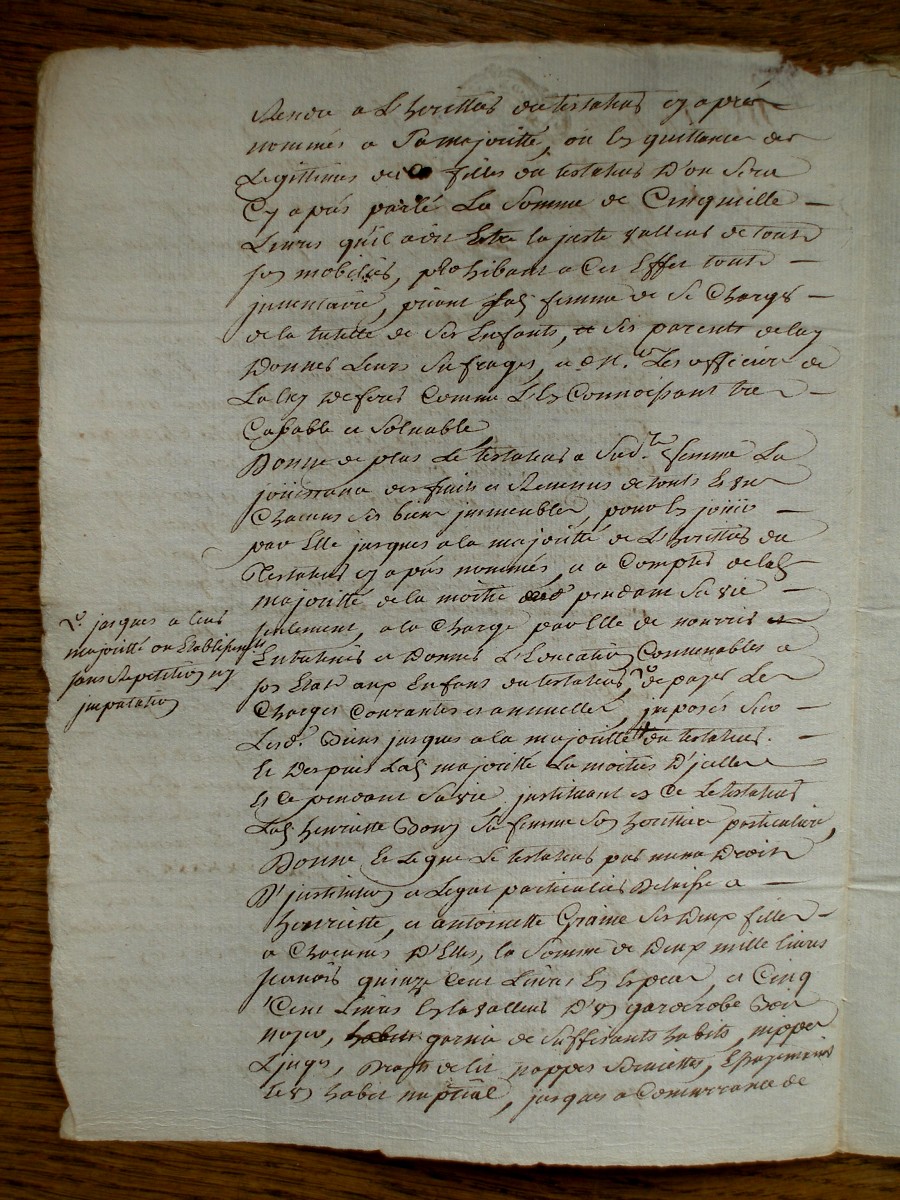 Rendre a L'heritier du testateur cy apres
nommés a sa majorité, ou les quittances des
Legittimes des filles du testateur D'ou sera
Cy apres parlé La Somme de Cinq mille
Livres qu'il a dit Estre la juste valleur de touts
ses mobiliers, prohibant a Cet Effet tout
inventaire, priant lad femme de se Charger
de la tutelle de ses Enfants, et ses parents de luy
Donner Leurs sufrages, a Mrs Les officiers de
Comme L'En Connoissant tres
Capable et Solvable
Donne de plus Le testateur a Sade femme La
jouissance des fruits et Revenus de touts Et un
Chacuns ses biens immeubles, pour En jouir
par Elle jusques a la majorité de L'heritier du
Testateur cy apres nommés, et a Compter de lad
majorité de la moitié pendant Sa vie
seulement, a la Charge par Elle de nourrir et
Entretenir et Donner L'Education Convenables a
son Etat aux Enfans du testateur, de payer Les
Charges Courantes et annuelles, imposés Sur
Lesds Biens jusques a la majorité du testateur.
Et Despuis Lad majorité La moitiés D'jcelles
Et Ce pendant Sa vie, instituant en Ce Le testateur
Lad henriette Sa femme Son heritiere particuliere,
Donne Et Legue Le testateur par meme Droit
D'jnstitution et Legat particulier Delaisse a
henriette, et antoinette Graime Ses Deux filles
a Chacunes D'Elles, la Somme de Deux mille livres
scavoir quinze Cent Livres En Espece, et Cinq
Cent Livres En la valleur D'un garderobe Bois
noyer, garnie de Suffisants habits, nippes
Linges, Draps de lit nappes Serviettes,
Et un habit nuptial, jusques a Concurrance de
jusques a leur
majorité ou Etablissement
sans Repetition ny
imputation